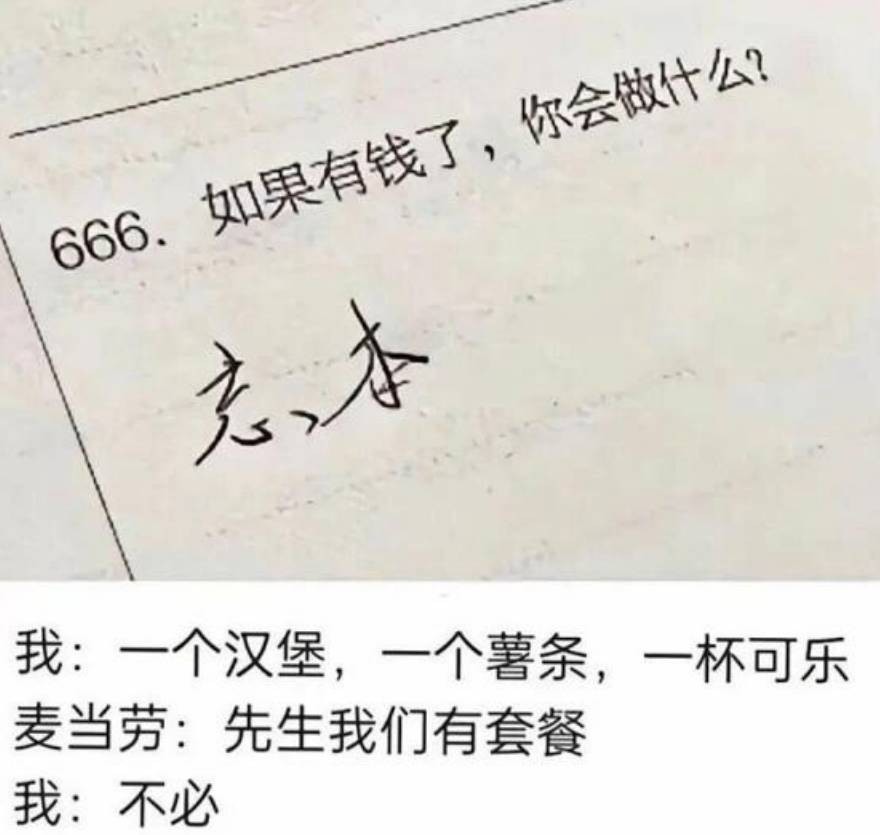 666. 如果有钱了，你会做什么？
忘本
我：一个汉堡，一个薯条，一杯可乐
麦当劳：先生我们有套餐
我：不必